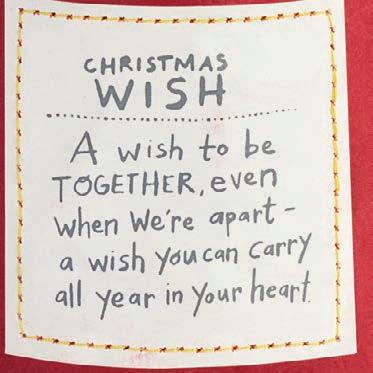 CHRISTMAS
WISH
A wish to be
TOGETHER, even
when We're apart -
a wish you can carry
all year in your heart.